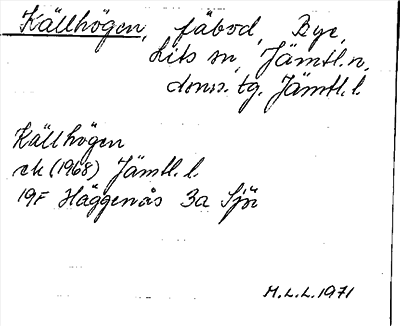 Källhögen, fäbod, Bye,
Lits sn, Jämtl.n,
doms. tg. Jämtl.l.
Källhögen
ek (1968) Jämtl. l.
19F Häggenås 3a Sjö
M.L.L. 1971